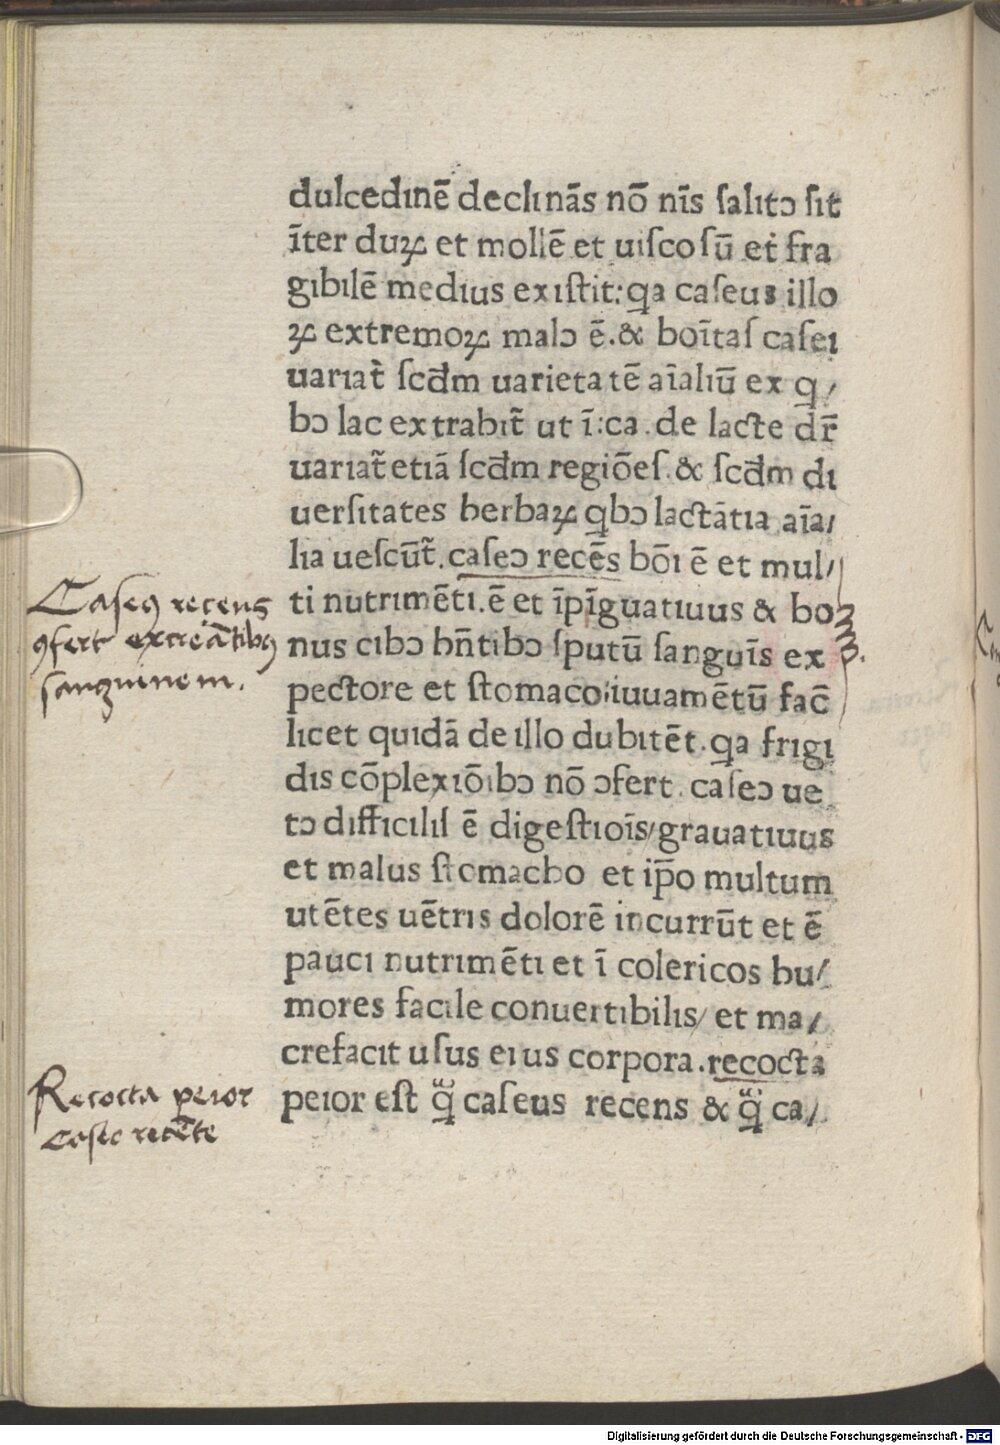 dulcedinē declinās nō nīs ſalitɔ ſit
īter duꝝ et mollē et uiſcoſū et fra
gibilē medius exiſtit: qa caſeus illo
ꝝ extremoꝝ malɔ ē. & boītaſ caſei
uariat̃ ſcd̄m uarietatē aīaliū ex q/
bɔ lac extrahit̃ ut ī: ca. de lacte dr̄
uariat̃ etiā ſcd̄m regiōeſ. & ſcd̄m di
uerſitates herbaꝝ qbɔ lactātia aīa/
lia ueſcūt̃. caſeɔ recēs bōi ē et mul/
ti nutrimēti. ē et īpīguatiuus & bo
nus cibɔ hn̄tibɔ ſputū ſanguīs ex
pectore et ſtomaco: iuuamētū fac̄
licet quidā de illo dubitēt. qa frigi
dis cōplexiōibɔ nō ɔfert. caſeɔ ue
tɔ difficiliſ ē digeſtioīs/ grauatiuus
et malus ſtomacho et ip̄o multum
utētes uētris dolorē incurrūt et ē
pauci nutrimēti et ī colericos hu/
mores facile conuertibilis/ et ma/
crefacit uſus eius corpora. recocta
peior eſt q̈̃ caſeus recens & q̈̃ ca/
Caſeꝯ recens
ꝯfert excreātibꝯ
ſanguinem.
Recocta peior
caſeo recēte
Digitalisierung gefördert durch die Deutsche Forschungsgemeinschaft - DFG